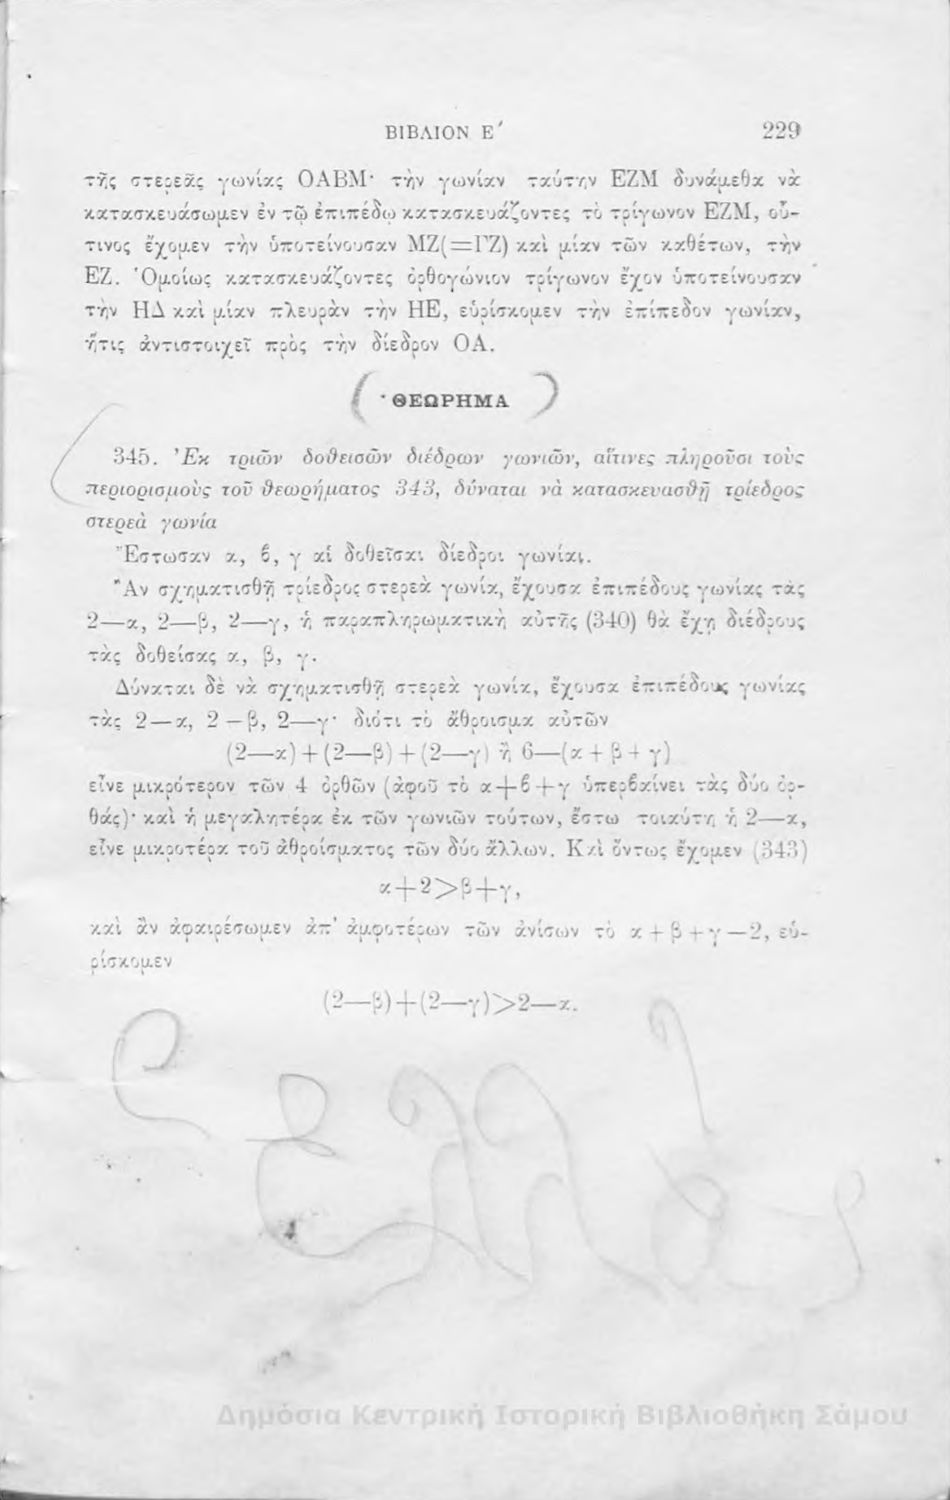 ΒΙΒΛΙΟΝ Ε΄ 229
τῆς στερεᾶς γωνίας ΟΑΒΜ· τὴν γωνίαν ταύτην ΕΖΜ δυνάμεθα νὰ
κατασκευάσωμεν ἐν τῷ ἐπιπέδῳ κατασκευάζοντες τὸ τρίγωνον ΕΖΜ, οὗ-
τινος ἔχομεν τὴν ὑποτείνουσαν ΜΖ(=ΓΖ) καὶ μίαν τῶν καθέτων, τὴν
ΕΖ. Ὁμοίως κατασκευάζοντες ὀρθογώνιον τρίγωνον ἔχον ὑποτείνουσαν
τὴν ΗΔ καὶ μίαν πλευρὰν τὴν ΗΕ, εὑρίσκομεν τὴν ἐπίπεδον γωνίαν,
ἥτις ἀντιστοιχεῖ πρὸς τὴν δίεδρον ΟΑ.
ΘΕΩΡΗΜΑ
345. Ἐκ τριῶν δοθεισῶν διέδρων γωνιῶν, αἵτινες πληροῦσι τοὺς
περιορισμοὺς τοῦ θεωρήματος 343, δύναται νὰ κατασκευασθῇ τρίεδρος
στερεὰ γωνία
Ἔστωσαν α, ϐ, γ αἱ δοθεῖσαι δίεδροι γωνίαι.
Ἂν σχηματισθῇ τρίεδρος στερεὰ γωνία, ἔχουσα ἐπιπέδους γωνίας τὰς
2—α, 2—β, 2—γ, ἡ παραπληρωματικὴ αὐτῆς (340) θὰ ἔχῃ διέδρους
τὰς δοθείσας α, β, γ.
Δύναται δὲ νὰ σχηματισθῇ στερεὰ γωνία, ἔχουσα ἐπιπέδους γωνίας
τὰς 2—α, 2—β, 2—γ· διότι τὸ ἄθροισμα αὐτῶν
(2—α)+(2—β)+(2—γ) ἢ 6—(α+β+γ)
εἶνε μικρότερον τῶν 4 ὀρθῶν (ἀφοῦ τὸ α+ϐ+γ ὑπερϐαίνει τὰς δύο ὀρ-
θάς)· καὶ ἡ μεγαλητέρα ἐκ τῶν γωνιῶν τούτων, ἔστω τοιαύτη ἡ 2—α,
εἶνε μικροτέρα τοῦ ἀθροίσματος τῶν δύο ἄλλων. Καὶ ὄντως ἔχομεν (343)
α+2>β+γ,
καὶ ἂν ἀφαιρέσωμεν ἀπ' ἀμφοτέρων τῶν ἀνίσων τὸ α+β+γ—2, εὑ-
ρίσκομεν
(2—β)+(2—γ)>2—α.
Δημόσια Κεντρική Ιστορική Βιβλιοθήκη Σάμου